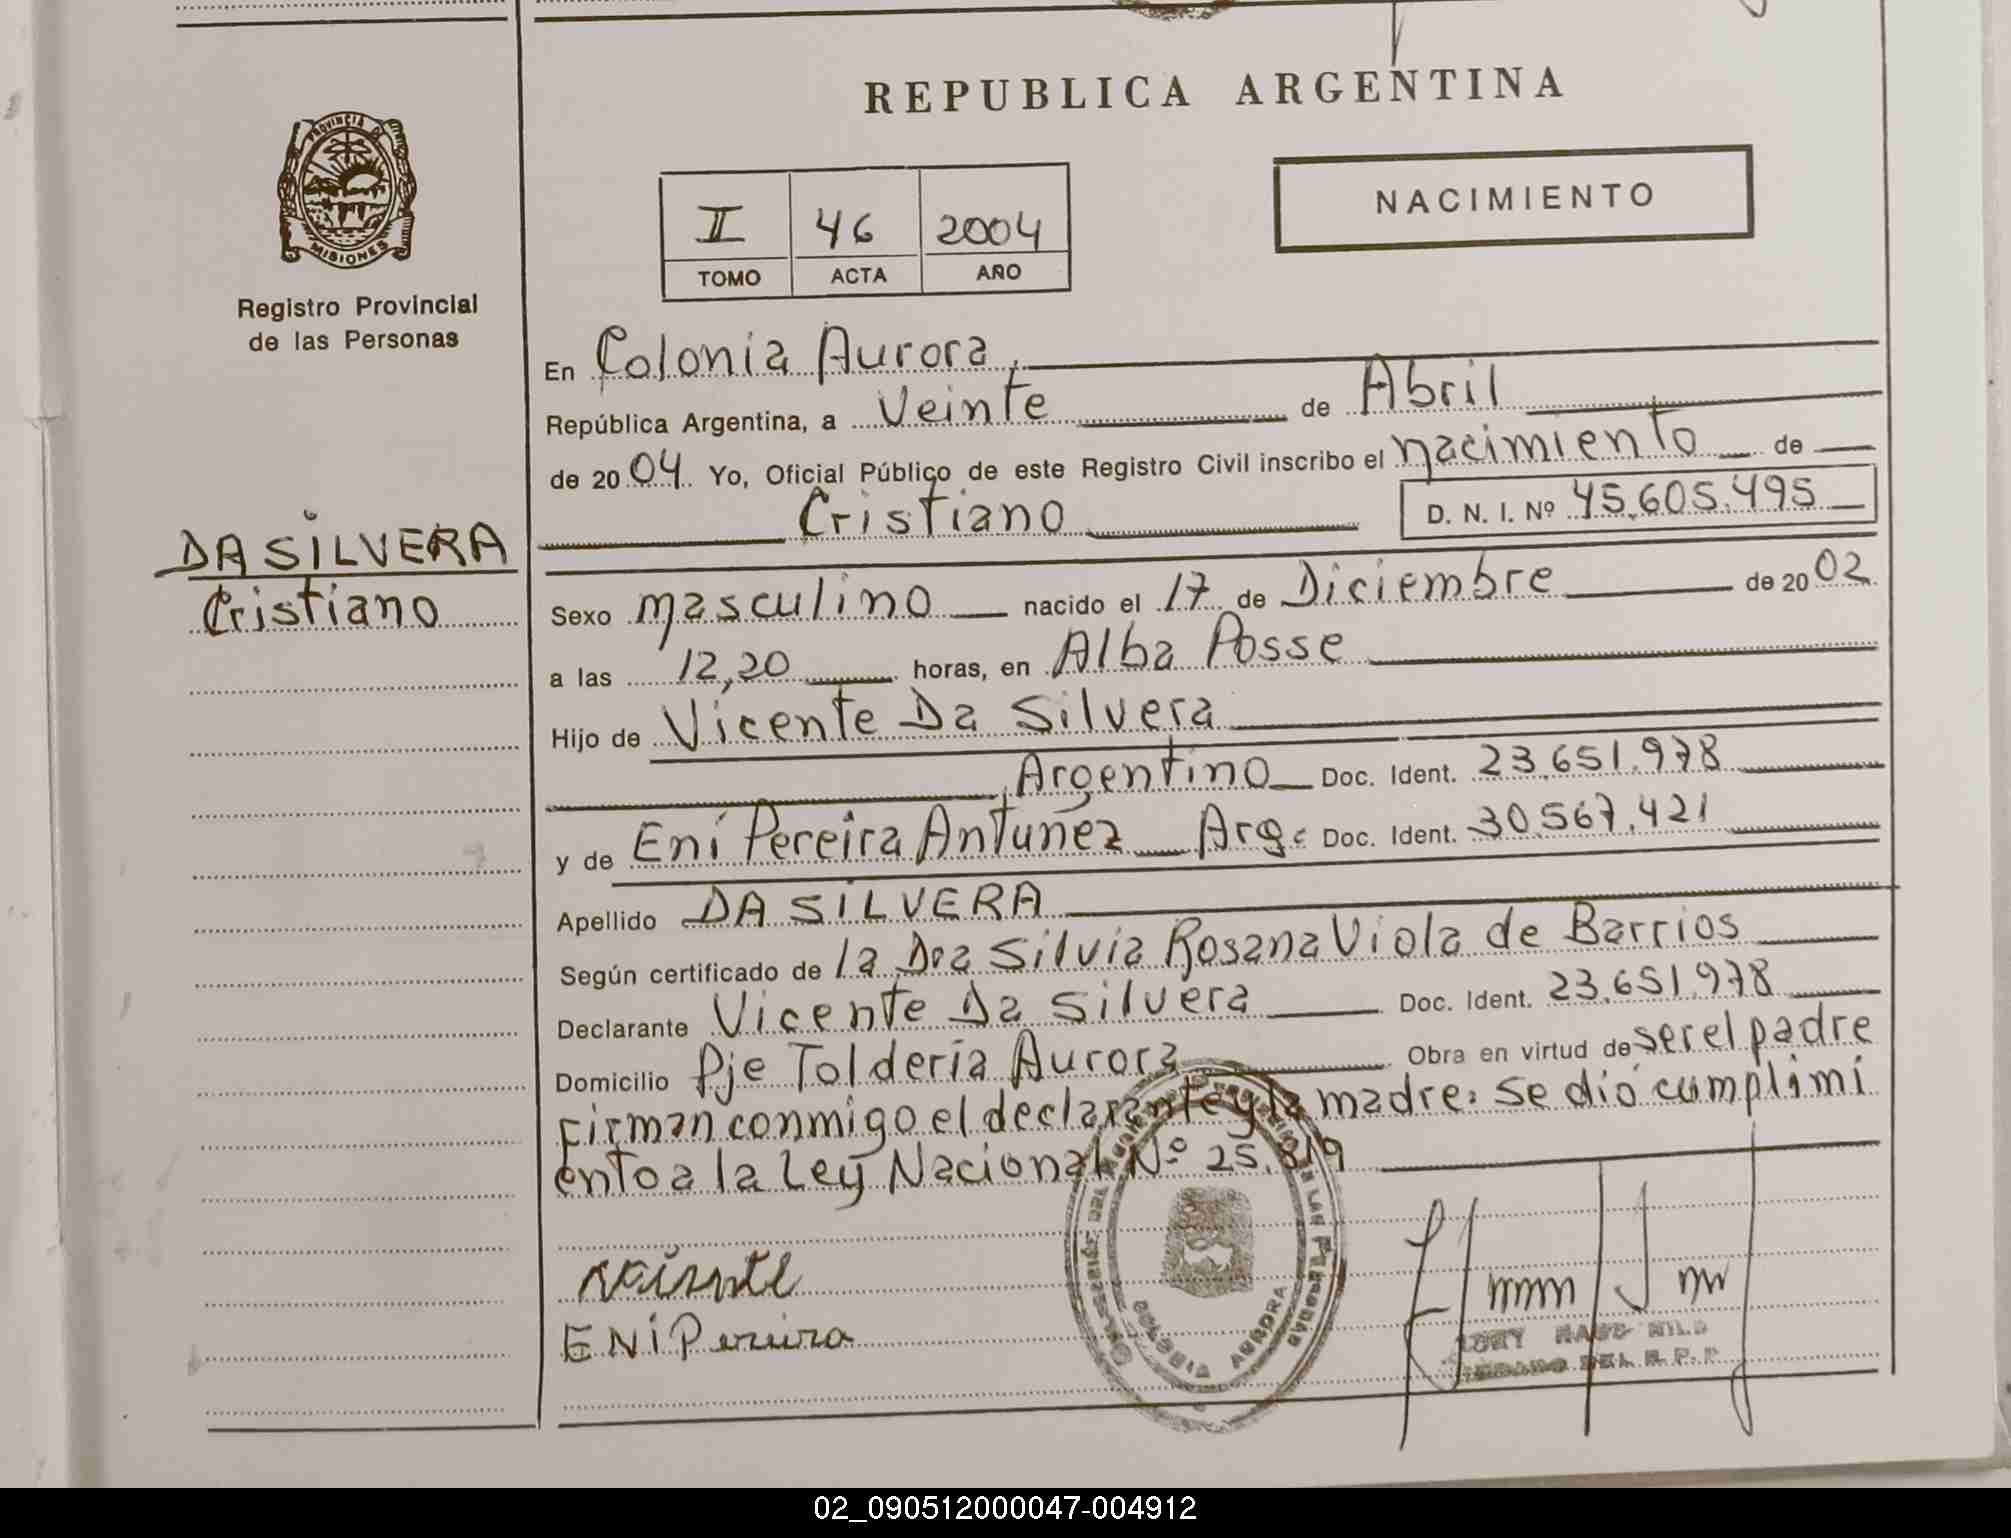 REPUBLICA ARGENTINA
PROVINCIA DE
MISIONES
Registro Provincial
de las Personas
NACIMIENTO
II 46 2004
TOMO ACTA AÑO
DA SILVERA
Cristiano
En Colonia Aurora
República Argentina, a Veinte de Abril
de 2004 Yo, Oficial Público de este Registro Civil inscribo el nacimiento de
Cristiano D. N. I. Nº 45.605.495
Sexo masculino nacido el 17 de Diciembre de 2002
a las 12,20 horas, en Alba Posse
Hijo de Vicente Da Silvera
Argentino Doc. Ident. 23.651.978
y de Eni Pereira Antunez Arg. Doc. Ident. 30.567.421
Apellido DA SILVERA
Según certificado de la Dra Silvia Rosana Viola de Barrios
Declarante Vicente Da Silvera Doc. Ident. 23.651.978
Domicilio Pje Toldería Aurora Obra en virtud de ser el padre
Firman conmigo el declarante y la madre. Se dió cumplimi
ento a la Ley Nacional Nº 25.819
ENI Pereira
COLONIA AURORA
02_090512000047-004912